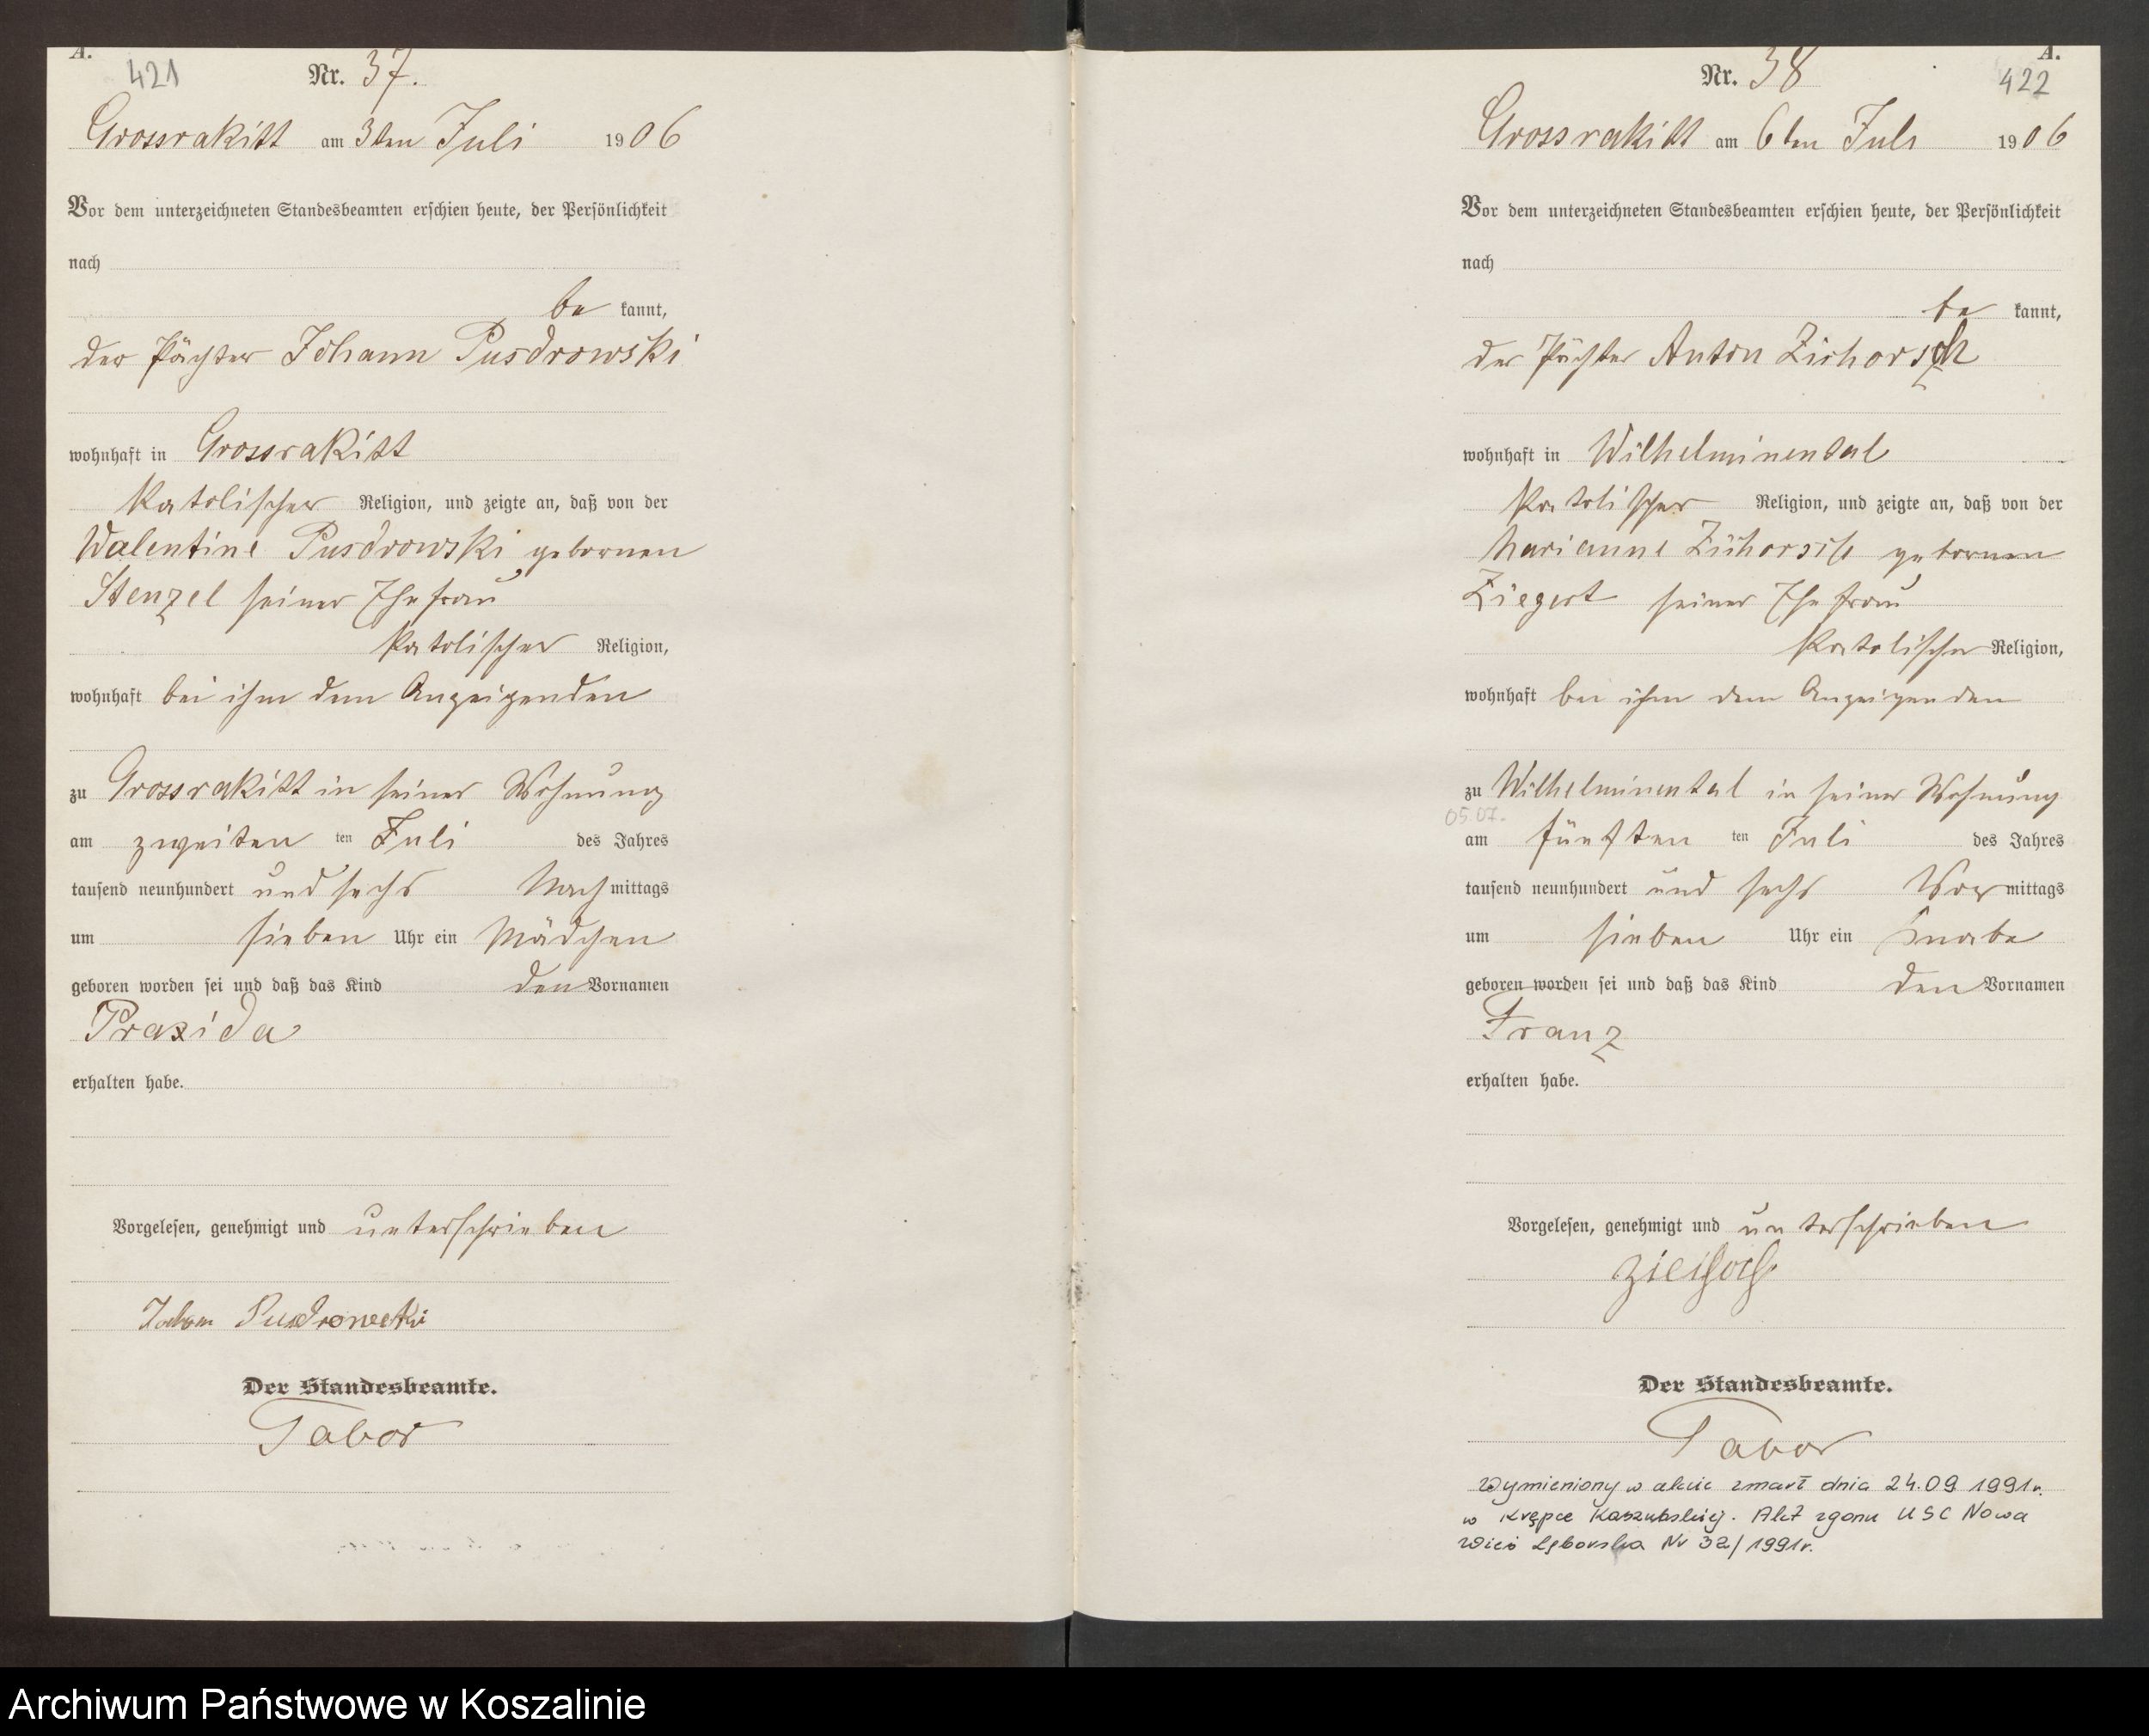 A.
421
Nr. 37.
Grossrakitt am 3ten Juli 1906
Vor dem unterzeichneten Standesbeamten erschien heute, der Persönlichkeit
nach
be kannt,
der Pächter Johann Pusdrowski
wohnhaft in Grossrakitt
katolischer Religion, und zeigte an, daß von der
Walentine Pusdrowski gebornen
Stenzel seiner Ehefrau
katolischer Religion,
wohnhaft bei ihm dem Anzeigenden
zu Grossrakitt in seiner Wohnung
am zweiten ten Juli des Jahres
tausend neunhundert und sechs Nach mittags
um sieben Uhr ein Mädchen
geboren worden sei und daß das Kind den Vornamen
Praxida
erhalten habe.
Vorgelesen, genehmigt und unterschrieben
Johan Pusdrowski
Der Standesbeamte.
Tabor
A.
422
Nr. 38
Grossrakitt am 6ten Juli 1906
Vor dem unterzeichneten Standesbeamten erschien heute, der Persönlichkeit
nach
be kannt,
der Pächter Anton
wohnhaft in Wilhelminental
katolischer Religion, und zeigte an, daß von der
Marianne gebornen
Ziegert seiner Ehefrau
katolischer Religion,
wohnhaft bei ihm dem Anzeigenden
zu Wilhelminental in seiner Wohnung
05.07.
am fünften ten Juli des Jahres
tausend neunhundert und sechs Vor mittags
um sieben Uhr ein Knabe
geboren worden sei und daß das Kind den Vornamen
Franz
erhalten habe.
Vorgelesen, genehmigt und unterschrieben
Der Standesbeamte.
Tabor
Wymieniony w akcie zmarł dnia 24.09 1991r.
w Krępce Kaszubskiej. Akt zgonu USC Nowa
Wieś Lęborska Nr 32/1991r.
Archiwum Państwowe w Koszalinie